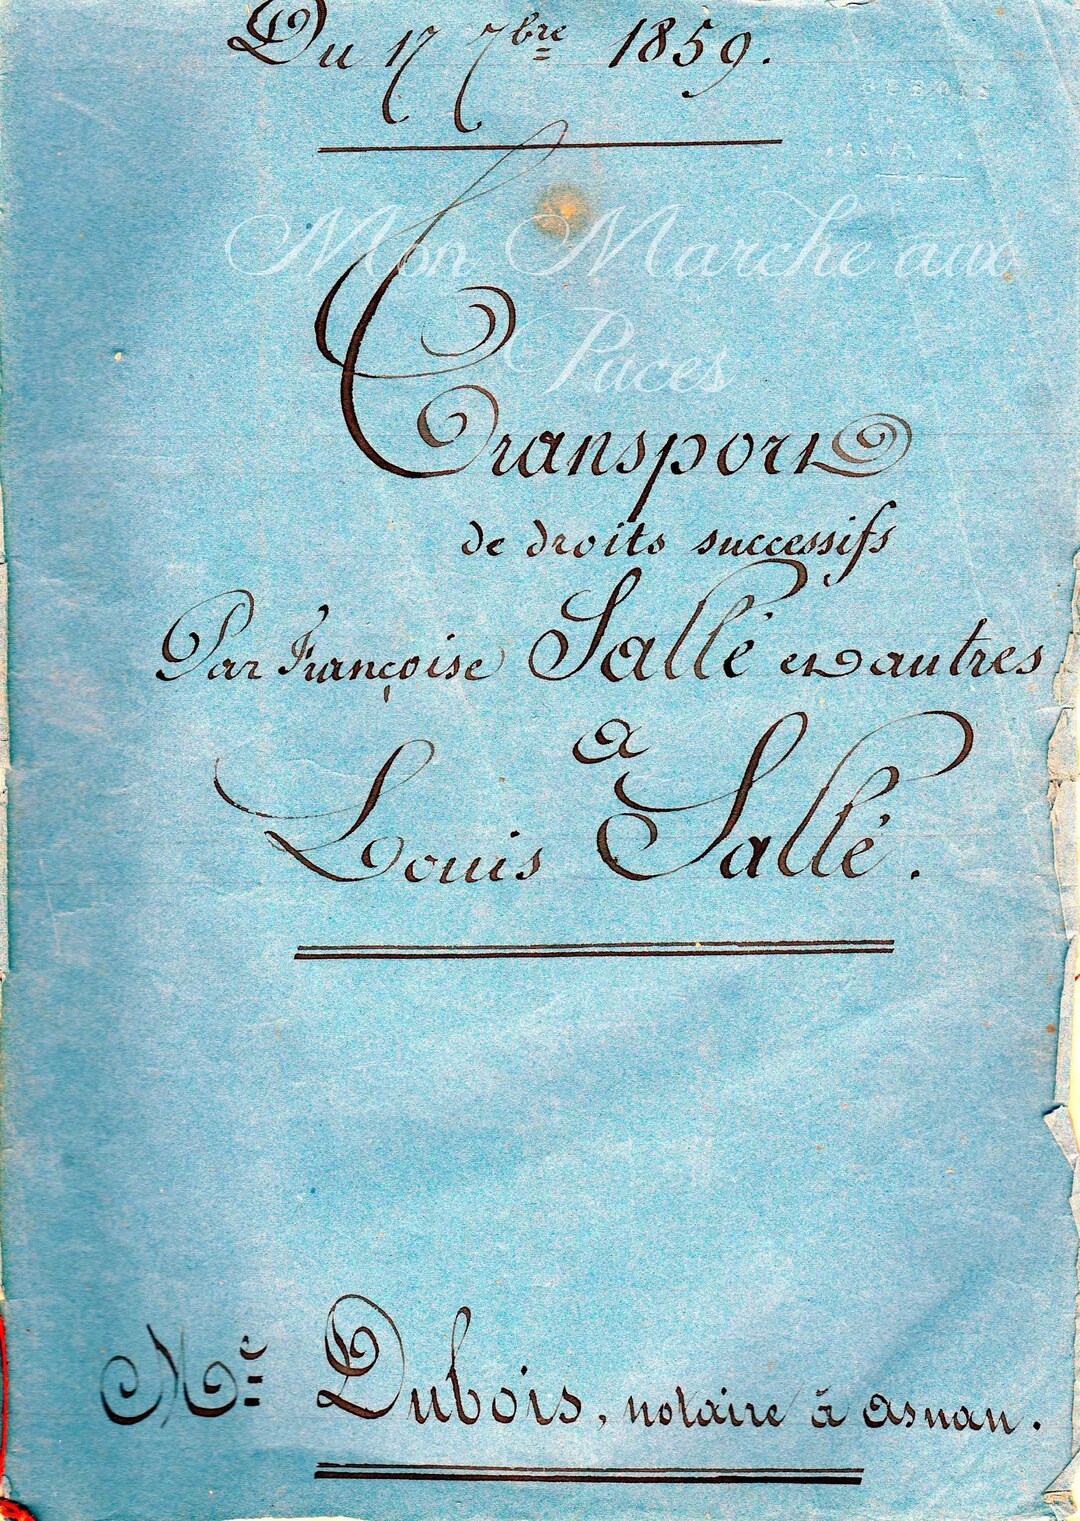 Du 17 7bre 1859.
Mon Marche aux
Puces
Transport
de droits successifs
Par Françoise Sallé et autres
a
Louis Sallé.
Me Dubois, notaire à asnan.